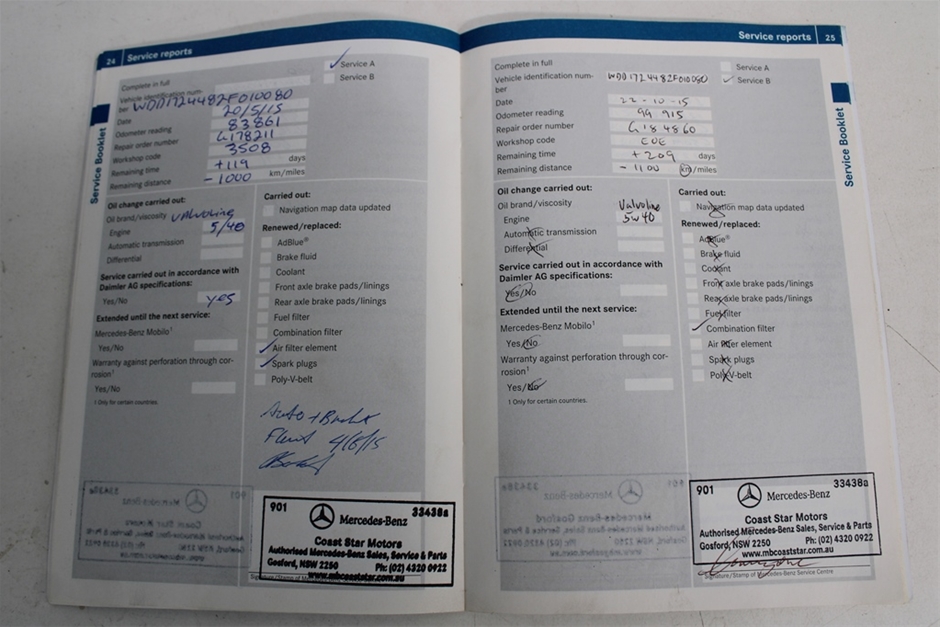 24 Service reports
Complete in full
✓ Service A
Service B
Vehicle identification num-
ber WDD1724482F010080
Date 20/5/15
Odometer reading 83861
Repair order number G178211
Workshop code 3508
Remaining time +119 days
Remaining distance -1000 km/miles
Service Booklet
Oil change carried out:
Oil brand/viscosity Valvoline
Engine 5/40
Automatic transmission
Differential
Service carried out in accordance with
Daimler AG specifications:
Yes/No yes
Extended until the next service:
Mercedes-Benz Mobilo¹
Yes/No
Warranty against perforation through cor-
rosion¹
Yes/No
¹ Only for certain countries.
Carried out:
Navigation map data updated
Renewed/replaced:
AdBlue®
Brake fluid
Coolant
Front axle brake pads/linings
Rear axle brake pads/linings
Fuel filter
Combination filter
✓ Air filter element
✓ Spark plugs
Poly-V-belt
Auto + Brake
Fluid 4/6/15
901 33438a
Mercedes-Benz
Coast Star Motors
Authorised Mercedes-Benz Sales, Service & Parts
Gosford, NSW 2250 Ph: (02) 4320 0922
www.mbcoaststar.com.au
Service reports 25
Complete in full
Service A
✓ Service B
Vehicle identification num-
ber WDD1724482F010080
Date 22-10-15
Odometer reading 99 915
Repair order number G184860
Workshop code
Remaining time +209 days
Remaining distance -1100 km/miles
Service Booklet
Oil change carried out:
Oil brand/viscosity Valvoline
Engine 5w40
Automatic transmission
Differential
Service carried out in accordance with
Daimler AG specifications:
Yes/No
Extended until the next service:
Mercedes-Benz Mobilo¹
Yes/No
Warranty against perforation through cor-
rosion¹
Yes/No
¹ Only for certain countries.
Carried out:
Navigation map data updated
Renewed/replaced:
AdBlue®
Brake fluid
Coolant
Front axle brake pads/linings
Rear axle brake pads/linings
Fuel filter
✓ Combination filter
Air filter element
Spark plugs
Poly-V-belt
901 33438a
Mercedes-Benz
Coast Star Motors
Authorised Mercedes-Benz Sales, Service & Parts
Gosford, NSW 2250 Ph: (02) 4320 0922
www.mbcoaststar.com.au
Signature/Stamp of Mercedes-Benz Service Centre